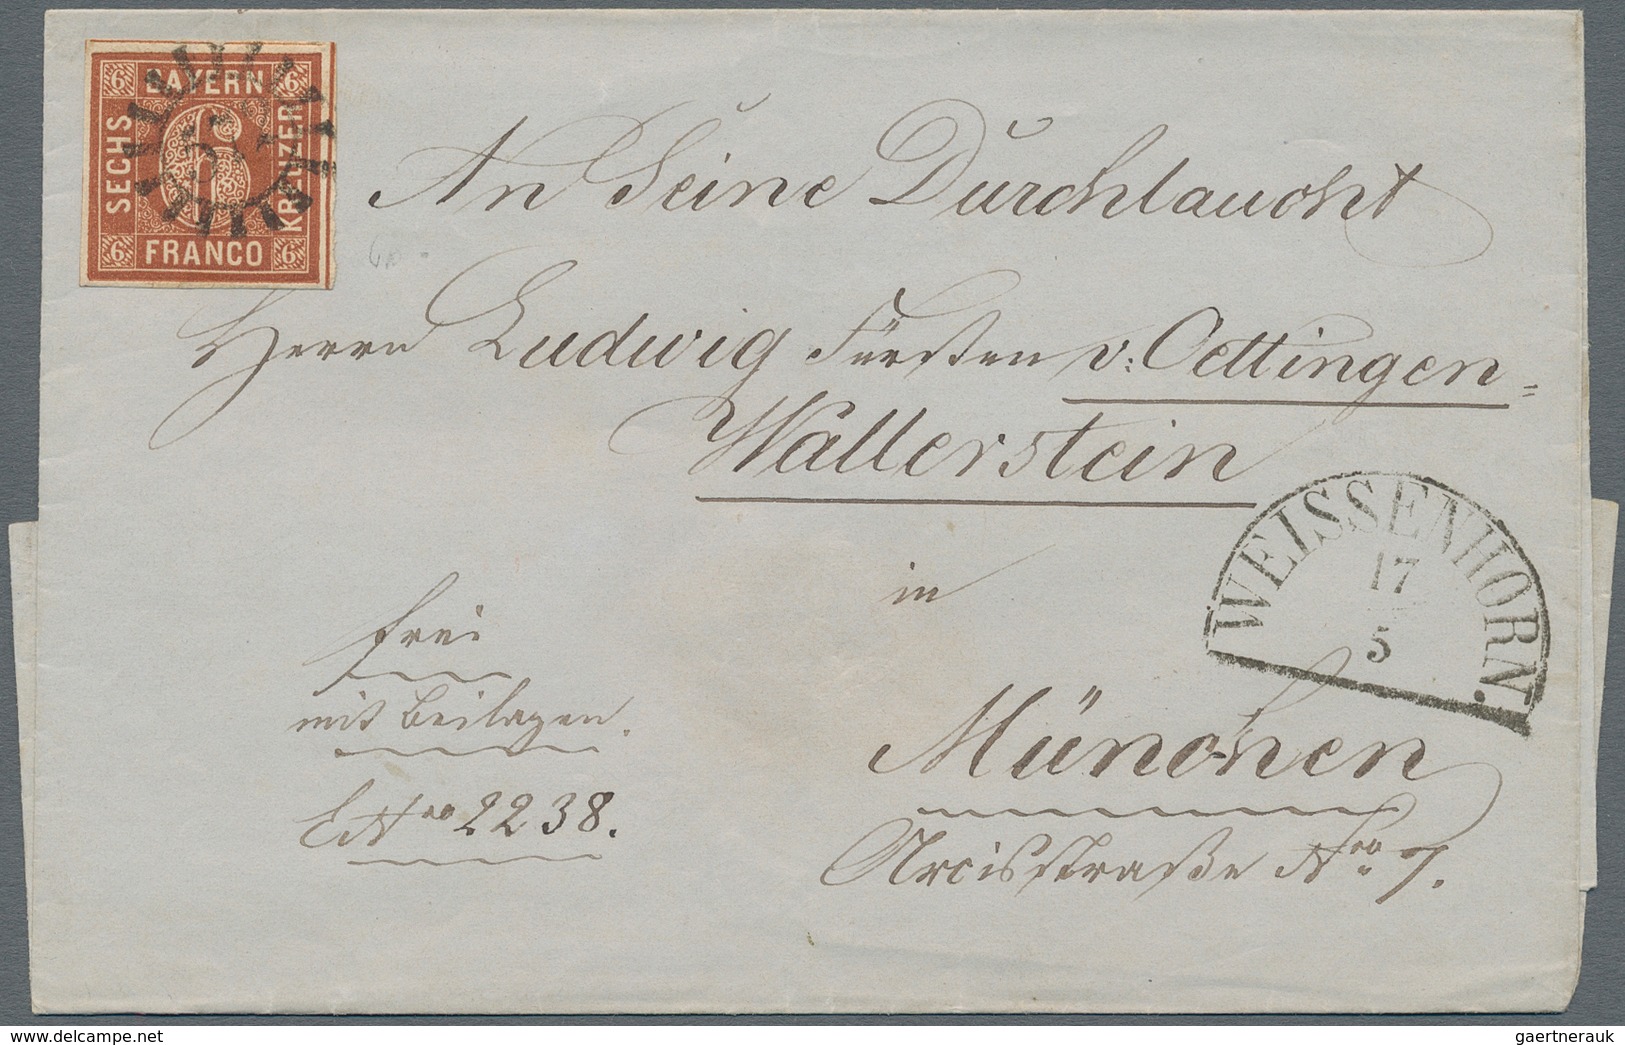 BAYERN
SECHS
KREUZER
FRANCO
6
6
6
6
6
An Seine Durchlaucht
Herrn Ludwig Fürsten v: Oettingen=
Wallerstein
in
München
Arcisstraße Nro 7.
frei
mit Beilagen.
ENro 2238.
WEISSENHORN.
17
5
www.delcampe.net
gaertnerauk